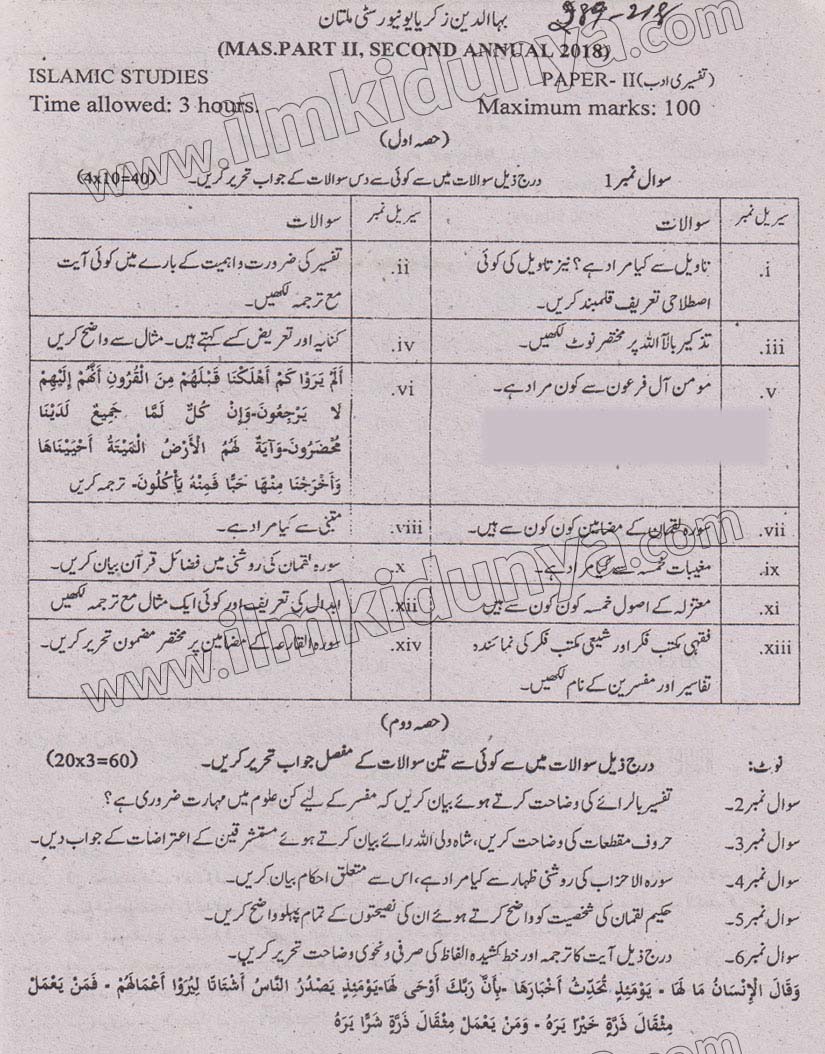 989-218
بہاالدین زکریا یونیورسٹی ملتان
(MAS.PART II, SECOND ANNUAL 2018)
ISLAMIC STUDIES PAPER- II (تفسیری ادب)
Time allowed: 3 hours. Maximum marks: 100
(حصہ اول)
سوال نمبر 1 درج ذیل سوالات میں سے کوئی سے دس سوالات کے جواب تحریر کریں۔ (4x10=40)
سیریل نمبر سوالات سیریل نمبر سوالات
i. تاویل سے کیا مراد ہے؟ نیز تاویل کی کوئی
اصطلاحی تعریف قلمبند کریں۔
ii. تفسیر کی ضرورت و اہمیت کے بارے میں کوئی آیت
مع ترجمہ لکھیں۔
iii. تذکیر بالآ اللہ پر مختصر نوٹ لکھیں۔
iv. کنایہ اور تعریض کسے کہتے ہیں۔ مثال سے واضح کریں
v. مومن آل فرعون سے کون مراد ہے۔
vi. أَلَمْ يَرَوْا كَمْ أَهْلَكْنَا قَبْلَهُمْ مِنَ الْقُرُونِ أَنَّهُمْ إِلَيْهِمْ
لَا يَرْجِعُونَ۔وَإِنْ كُلٌّ لَمَّا جَمِيعٌ لَدَيْنَا
مُحْضَرُونَ۔وَآيَةٌ لَهُمُ الْأَرْضُ الْمَيْتَةُ أَحْيَيْنَاهَا
وَأَخْرَجْنَا مِنْهَا حَبًّا فَمِنْهُ يَأْكُلُونَ۔ ترجمہ کریں
vii. سورہ لقمان کے مضامین کون کون سے ہیں۔
viii. متبنٰی سے کیا مراد ہے۔
ix. مغیبات خمسہ سے کیا مراد ہے۔
x. سورہ لقمان کی روشنی میں فضائل قرآن بیان کریں۔
xi. معتزلہ کے اصول خمسہ کون کون سے ہیں
xii. ابدال کی تعریف اور کوئی ایک مثال مع ترجمہ لکھیں
xiii. فقہی مکتب فکر اور شیعی مکتب فکر کی نمائندہ
تفاسیر اور مفسرین کے نام لکھیں۔
xiv. سورہ القارعہ کے مضامین پر مختصر مضمون تحریر کریں۔
(حصہ دوم)
نوٹ: درج ذیل سوالات میں سے کوئی سے تین سوالات کے مفصل جواب تحریر کریں۔ (20x3=60)
سوال نمبر 2۔ تفسیر بالرائے کی وضاحت کرتے ہوئے بیان کریں کہ مفسر کے لیے کن علوم میں مہارت ضروری ہے؟
سوال نمبر 3۔ حروف مقطعات کی وضاحت کریں، شاہ ولی اللہ رائے بیان کرتے ہوئے مستشرقین کے اعتراضات کے جواب دیں۔
سوال نمبر 4۔ سورہ الاحزاب کی روشنی ظہار سے کیا مراد ہے، اس سے متعلق احکام بیان کریں۔
سوال نمبر 5۔ حکیم لقمان کی شخصیت کو واضح کرتے ہوئے ان کی نصیحتوں کے تمام پہلو واضح کریں۔
سوال نمبر 6۔ درج ذیل آیت کا ترجمہ اور خط کشیدہ الفاظ کی صرفی و نحوی وضاحت تحریر کریں۔
وَقَالَ الْإِنْسَانُ مَا لَهَا - يَوْمَئِذٍ تُحَدِّثُ أَخْبَارَهَا -بِأَنَّ رَبَّكَ أَوْحَى لَهَا-يَوْمَئِذٍ يَصْدُرُ النَّاسُ أَشْتَاتًا لِيُرَوْا أَعْمَالَهُمْ - فَمَنْ يَعْمَلْ
مِثْقَالَ ذَرَّةٍ خَيْرًا يَرَهُ - وَمَنْ يَعْمَلْ مِثْقَالَ ذَرَّةٍ شَرًّا يَرَهُ
www.ilmkidunya.com
www.ilmkidunya.com